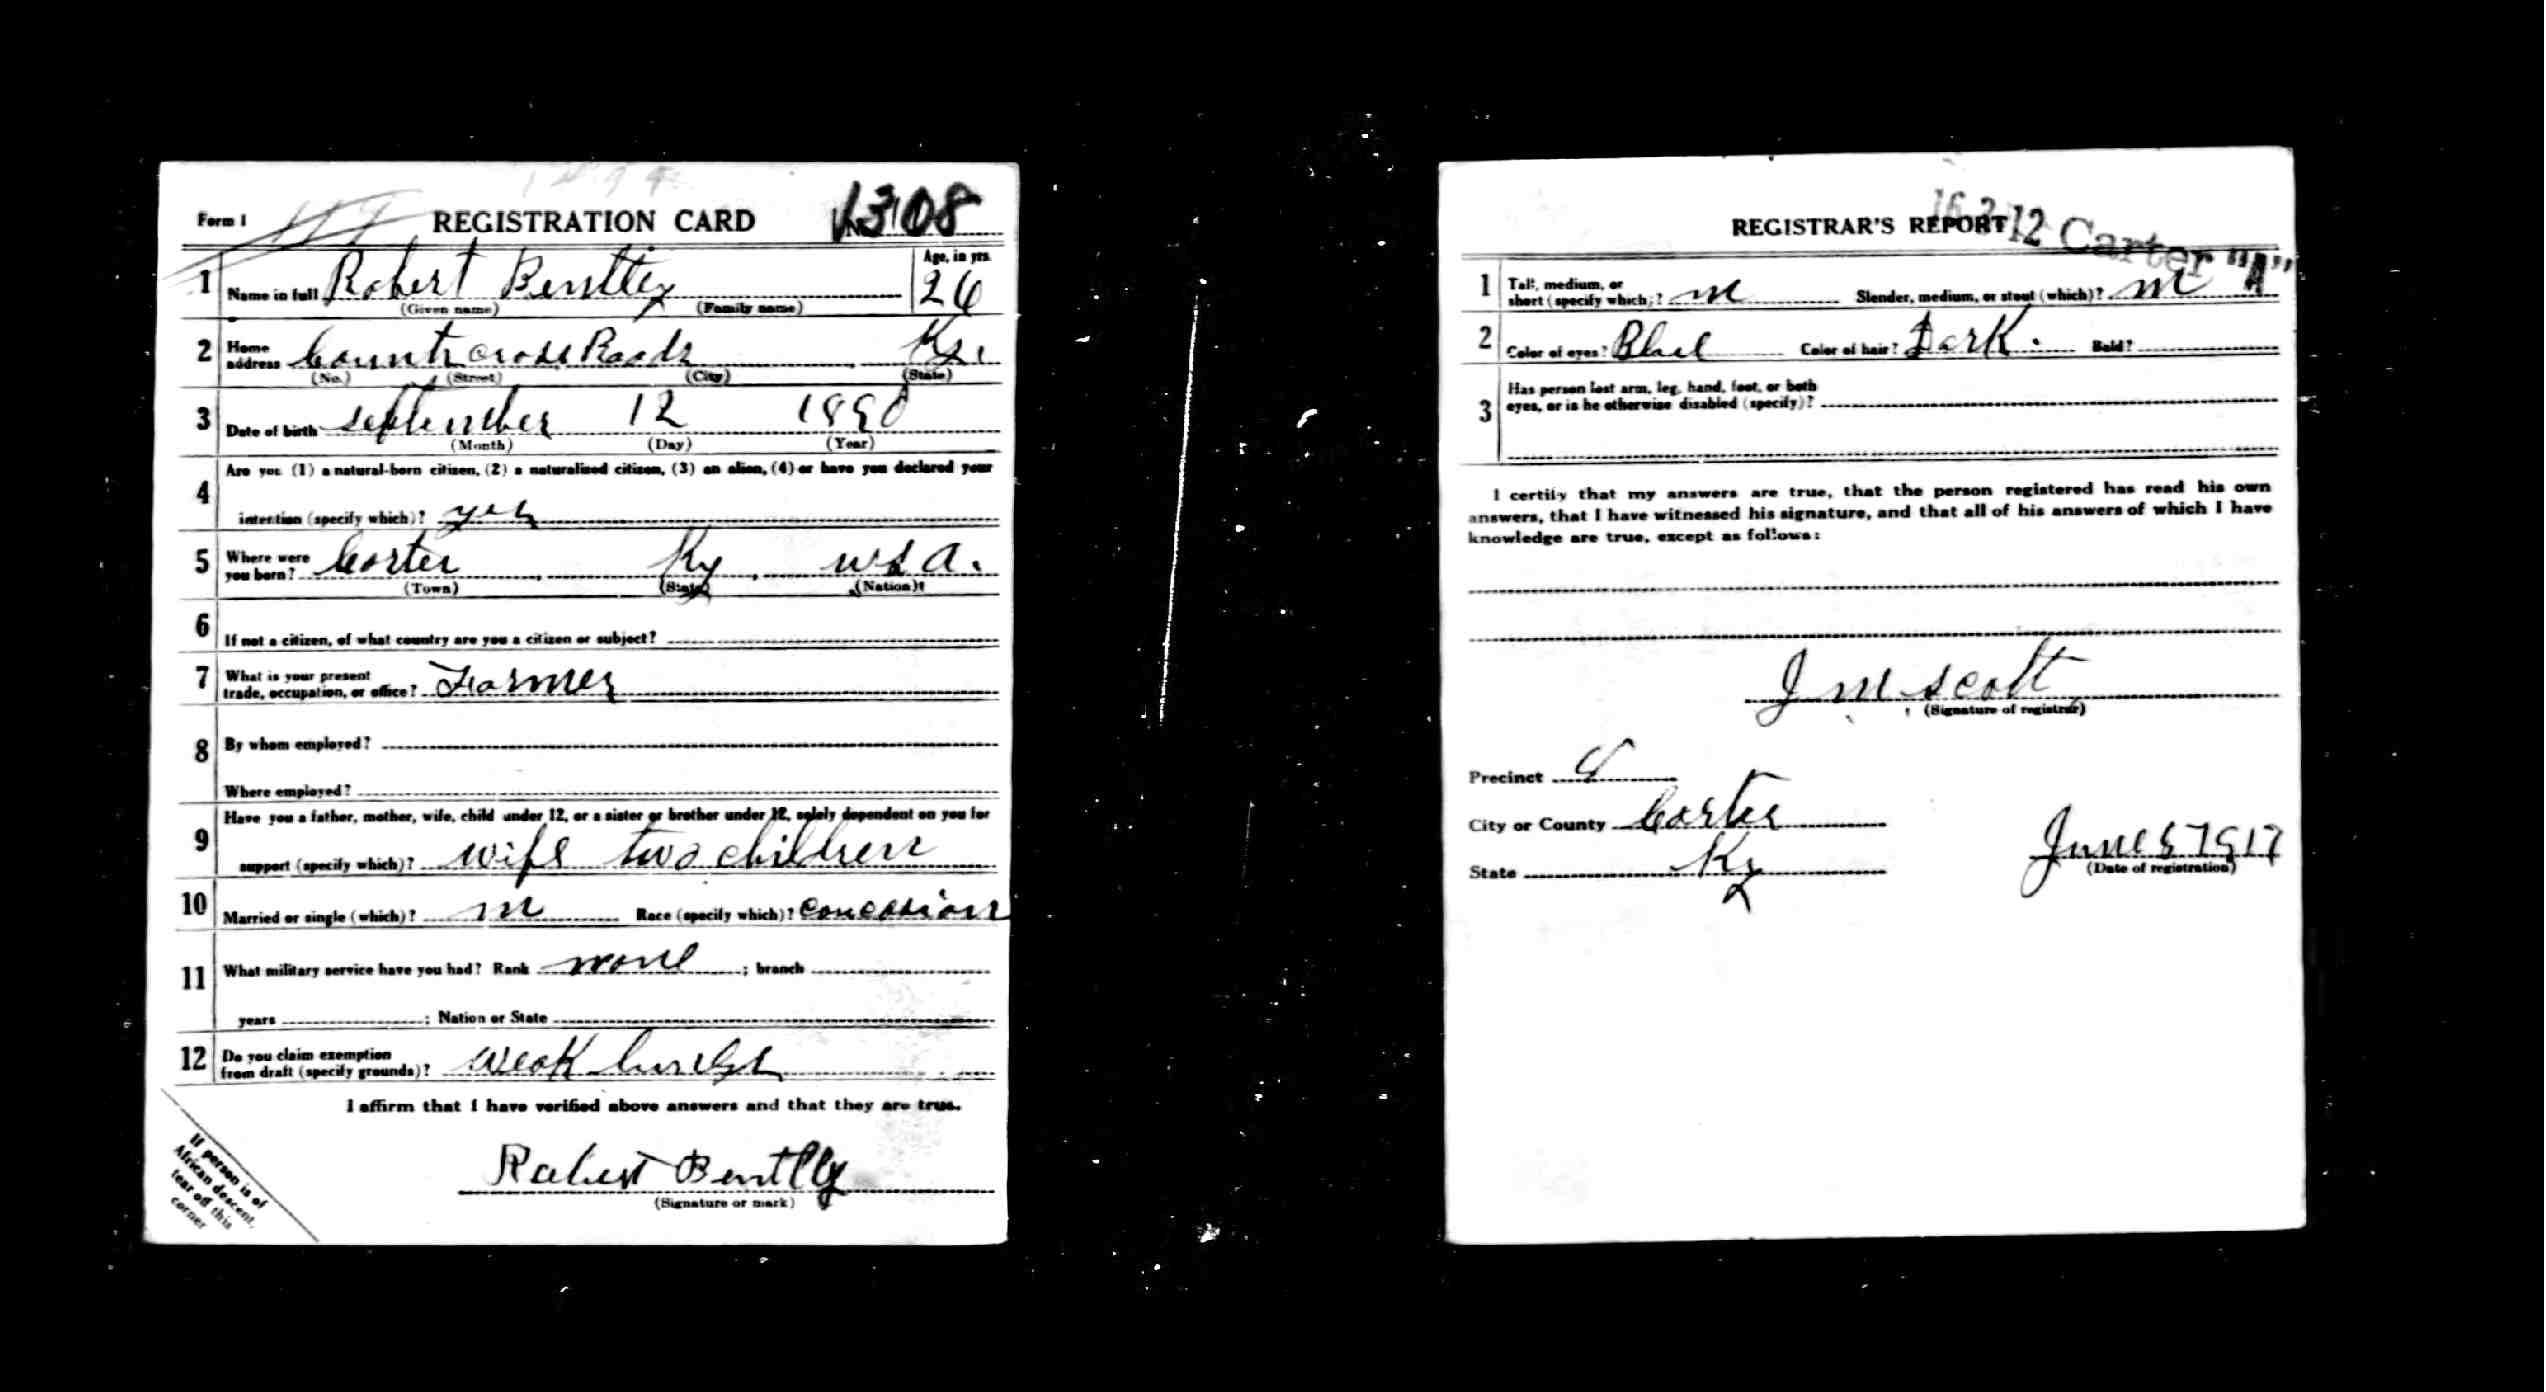 Form 1 REGISTRATION CARD No. 1308
1 Name in full Robert Benttey Age, in yrs. 26
(Given name) (Family name)
2 Home address Counts cross Roads Ky.
(No.) (Street) (City) (State)
3 Date of birth September 12 1890
(Month) (Day) (Year)
4 Are you (1) a natural-born citizen, (2) a naturalized citizen, (3) an alien, (4) or have you declared your
intention (specify which)? yes
5 Where were you born? Carter Ky USA.
(Town) (State) (Nation)
6 If not a citizen, of what country are you a citizen or subject?
7 What is your present
trade, occupation, or office? Farmer
8 By whom employed?
Where employed?
9 Have you a father, mother, wife, child under 12, or a sister or brother under 12, solely dependent on you for
support (specify which)? wife two children
10 Married or single (which)? m Race (specify which)? concasion
11 What military service have you had? Rank none ; branch
years ; Nation or State
12 Do you claim exemption
from draft (specify grounds)? Weak lungs
I affirm that I have verified above answers and that they are true.
Robert Bentlly
(Signature or mark)
If person is of
African descent,
tear off this
corner
16-2-12 Carter "A"
REGISTRAR'S REPORT
1 Tall, medium, or
short (specify which)? m Slender, medium, or stout (which)? m
2 Color of eyes? Blue Color of hair? Dark. Bald?
3 Has person lost arm, leg, hand, foot, or both
eyes, or is he otherwise disabled (specify)?
I certify that my answers are true, that the person registered has read his own
answers, that I have witnessed his signature, and that all of his answers of which I have
knowledge are true, except as follows:
J M Scott
(Signature of registrar)
Precinct
City or County Carter
State Ky
June 5 1917
(Date of registration)